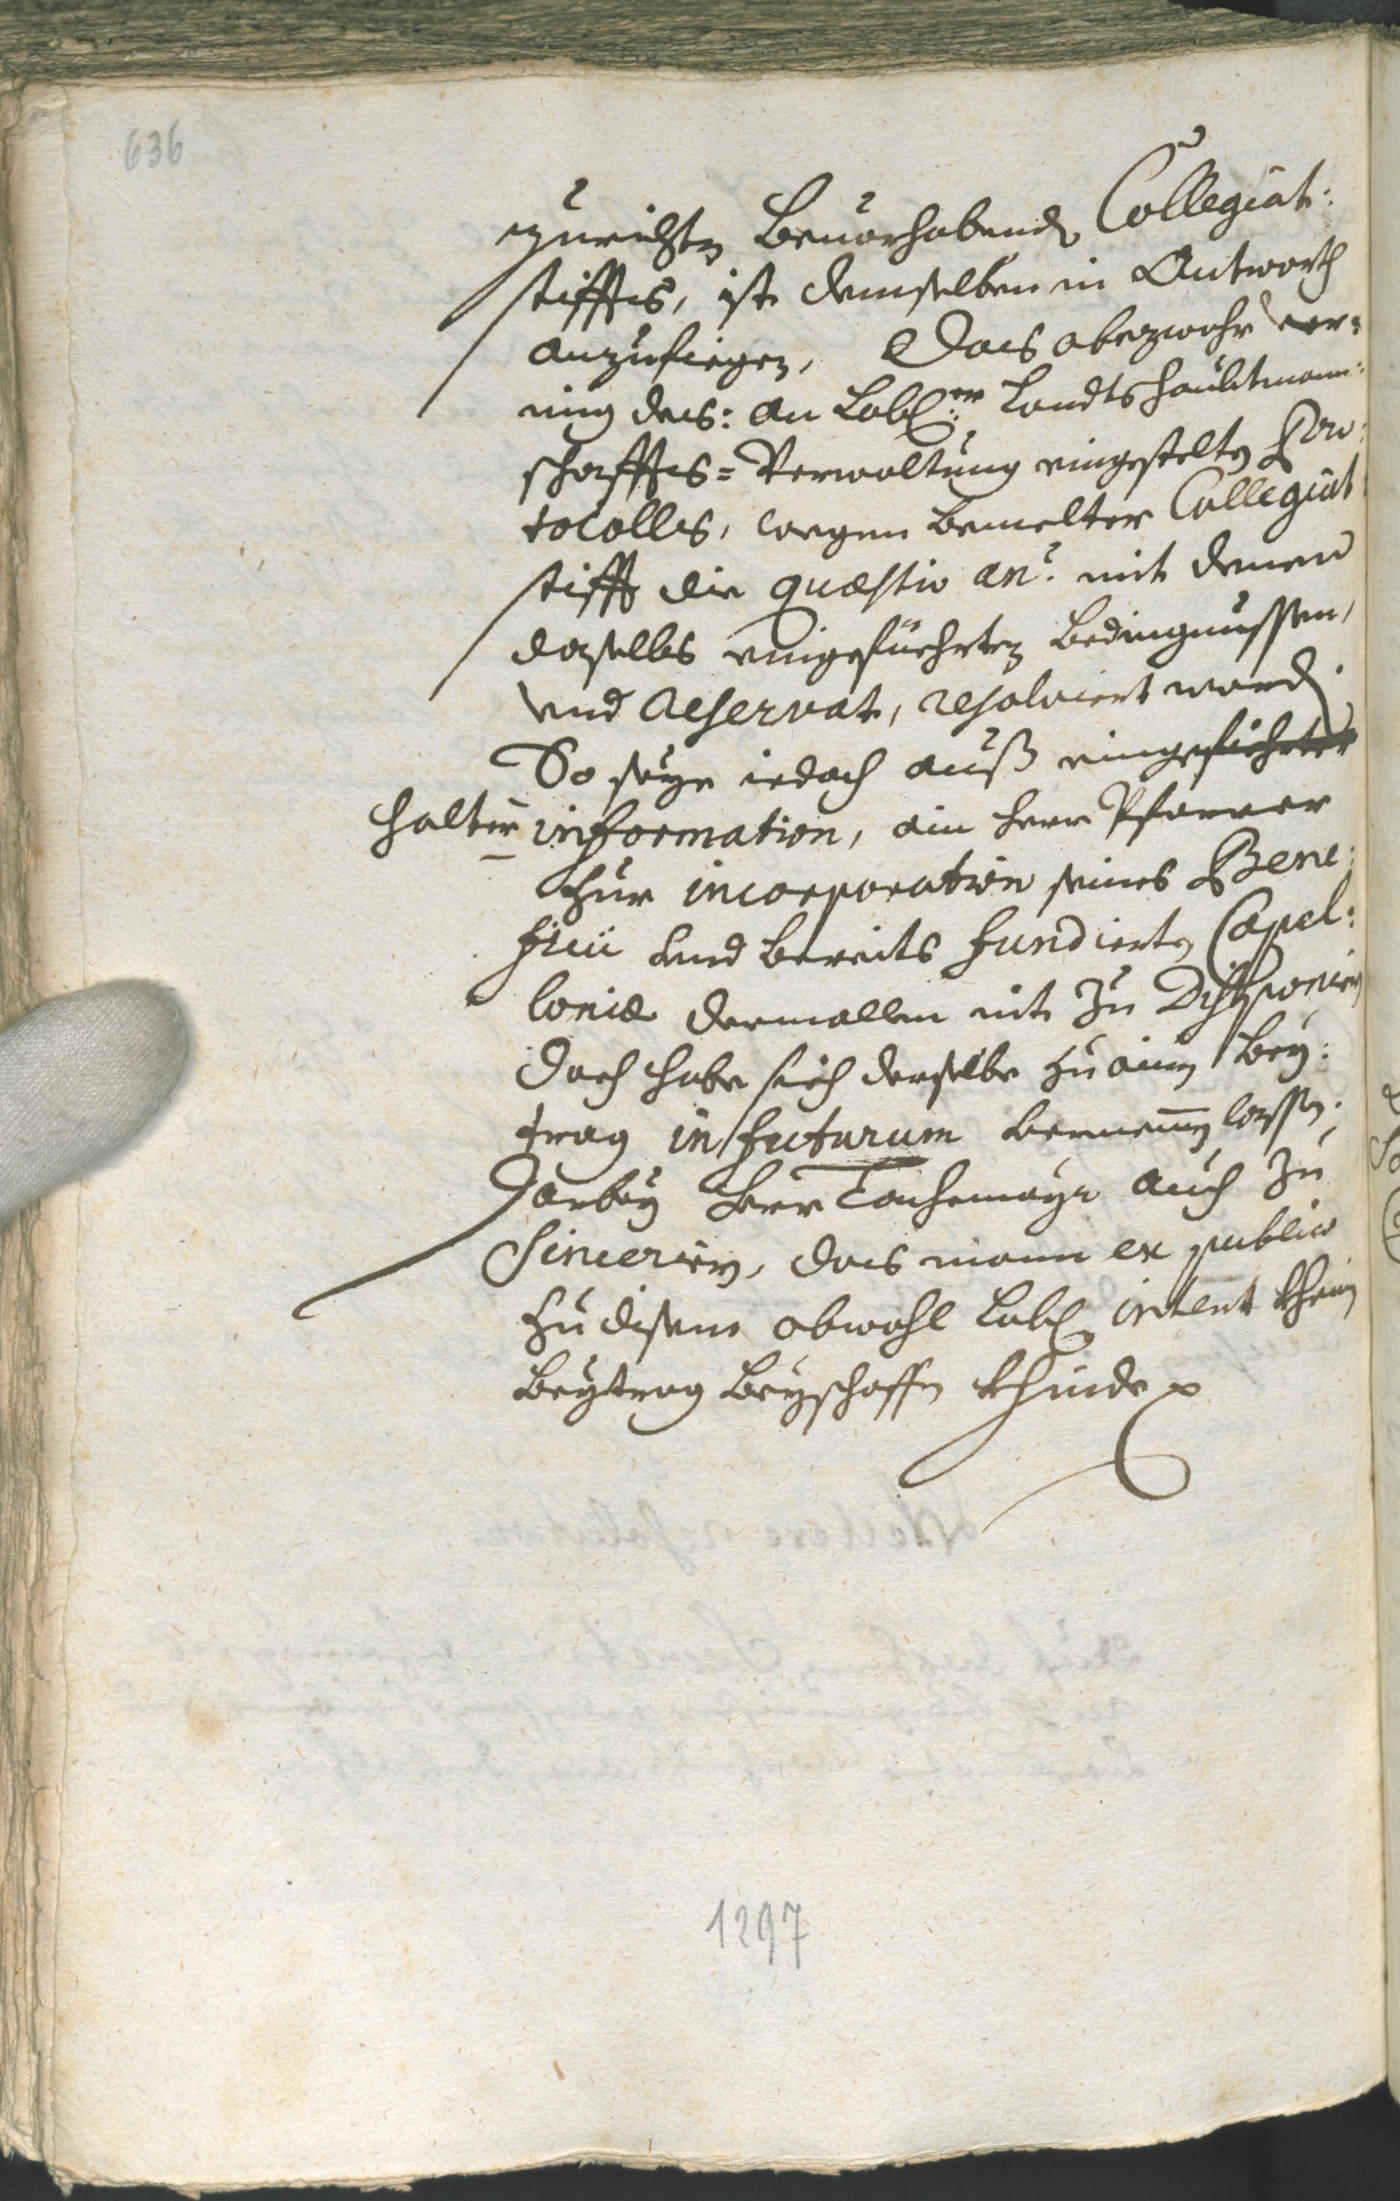 636
zurichten Beuorhabends Collegiat:
stiffts, ist demselben in Antworth
anzufiegen, Das obzwahr ver:
mig des: an Lobl:er Landtshaubtmann:
schaffts=Verwaltung eingestelten Pro:
tocolls, wegen bemelter Collegiat
stifft die quæstio an? mit denen
daselbs eingefüehrten bedingnussen,
vnd Reservat, resolviert worden
So seye iedoch auß eingefiehrter
halter information, ain herr Pfarrer
zur incorporation seines Bene:
ficii und bereits fundierten Capel:
loniæ dermallen nit zu Disponiern
doch habe sich derselbe zu ainem bey:
trag in futurum vernemmen lassen;
Darbey Herr Tachemayr auch zu
Sincerirn, das mann ex publico
zu disem obwohl Lobl intent khein
beytrag beyschaffen khinde
1297